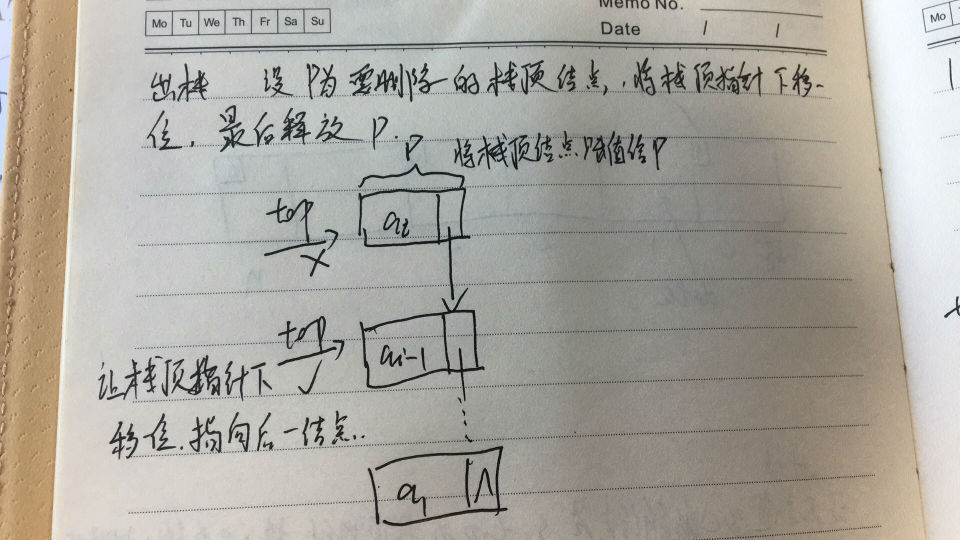 Memo No.
Mo Tu We Th Fr Sa Su
Date / /
Mo
出栈 设P为要删除的栈顶结点,将栈顶指针下移一
位,最后释放P.
P 将栈顶结点赋值给P
top
ai
×
top
ai-1
✓
让栈顶指针下
移一位,指向后一结点.
a1 ∧